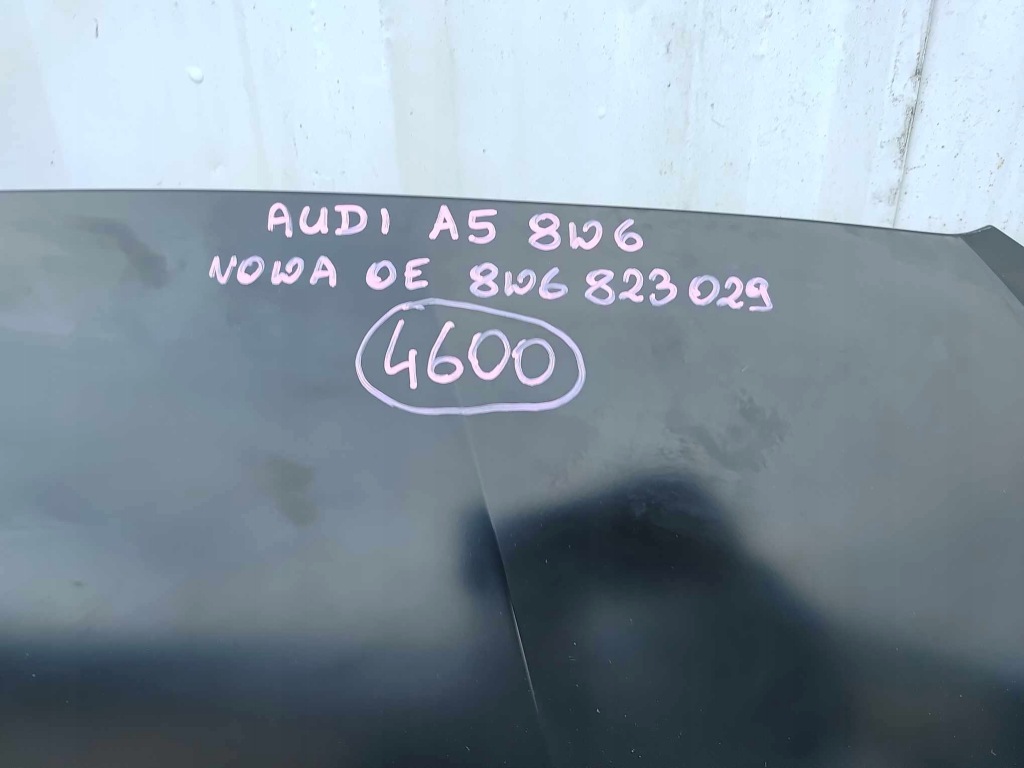 AUDI A5 8W6
NOWA OE 8W6 823 029
4600